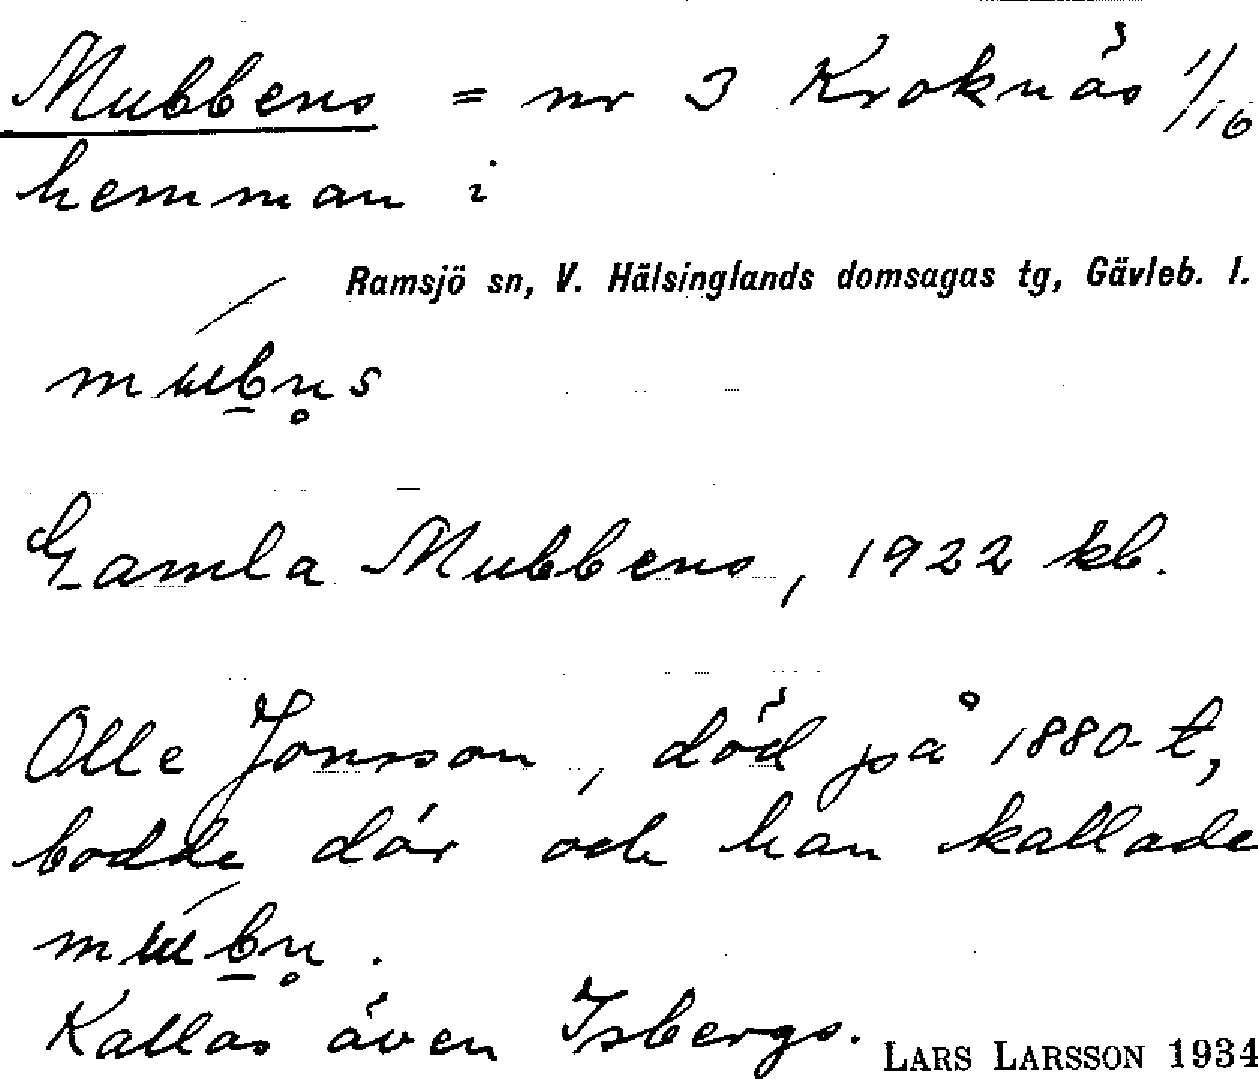 Mubbens = nr 3 Kroknäs 1/16
hemman i
Ramsjö sn, V. Hälsinglands domsagas tg, Gävleb. l.
Gamla Mubbens, 1922 kb.
Olle Jonsson, död på 1880-t,
bodde där och han kallade
Kallas även Isbergs.
LARS LARSSON 1934